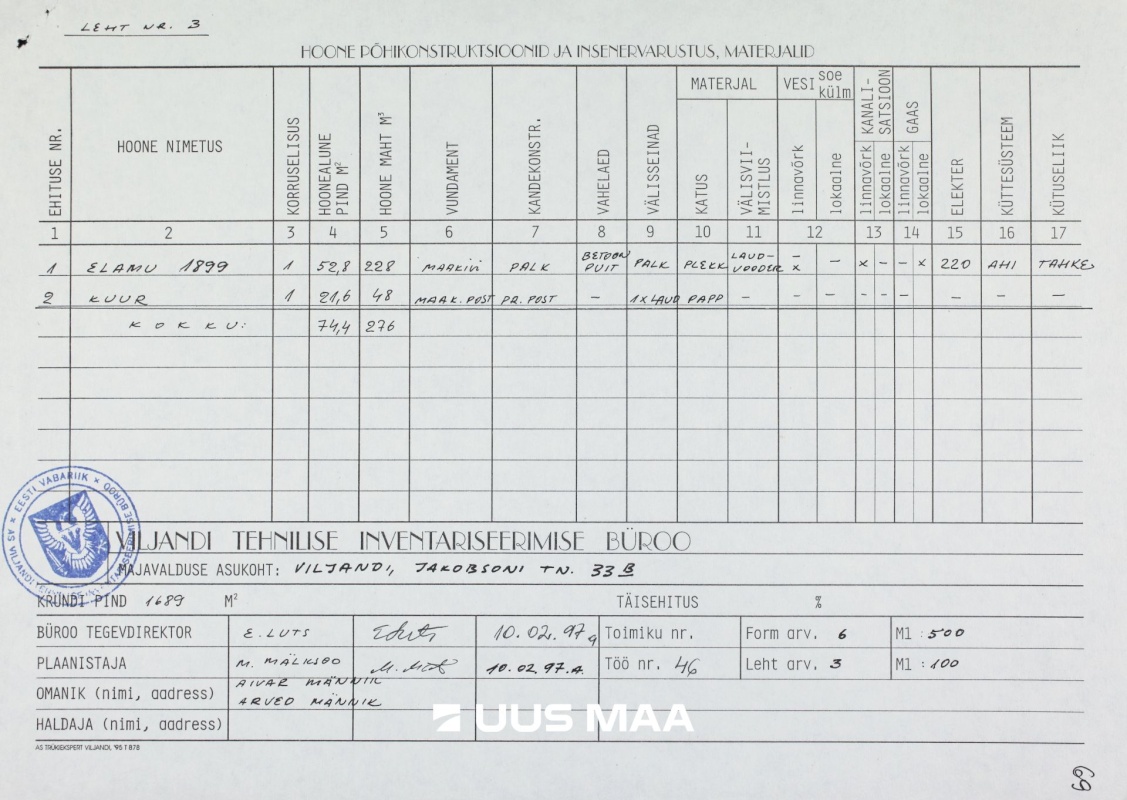 LEHT NR. 3
HOONE PÕHIKONSTRUKTSIOONID JA INSENERVARUSTUS, MATERJALID
EHITUSE NR. HOONE NIMETUS KORRUSELISUS HOONEALUNE PIND M² HOONE MAHT M³ VUNDAMENT KANDEKONSTR. VAHELAED VÄLISSEINAD MATERJAL KATUS VÄLISVII-MISTLUS VESI soe külm linnavõrk lokaalne KANALI-SATSIOON linnavõrk lokaalne GAAS linnavõrk lokaalne ELEKTER KÜTTESÜSTEEM KÜTUSELIIK
1 2 3 4 5 6 7 8 9 10 11 12 13 14 15 16 17
1 ELAMU 1899 1 52,8 228 MAAKIVI PALK BETOON PUIT PALK PLEKK LAUD-VOODER - x - x - - x 220 AHI TAHKE
2 KUUR 1 21,6 48 MAAK.POST PR. POST - 1X LAUD PAPP - - - - - - - - - -
KOKKU: 74,4 276
AS VILJANDI TEHNILISE INVENTARISEERIMISE BÜROO × EESTI VABARIIK ×
VILJANDI TEHNILISE INVENTARISEERIMISE BÜROO
MAJAVALDUSE ASUKOHT: VILJANDI, JAKOBSONI TN. 33 B
KRUNDI PIND 1689 M² TÄISEHITUS %
BÜROO TEGEVDIREKTOR E. LUTS 10.02.97 a Toimiku nr. Form arv. 6 M1 : 500
PLAANISTAJA M. MÄLKSOO 10.02.97.a. Töö nr. 46 Leht arv. 3 M1 : 100
OMANIK (nimi, aadress) AIVAR MÄNNIK
ARVED MÄNNIK
HALDAJA (nimi, aadress)
UUS MAA
AS TRÜKIEKSPERT VILJANDI, '95 T 878
69